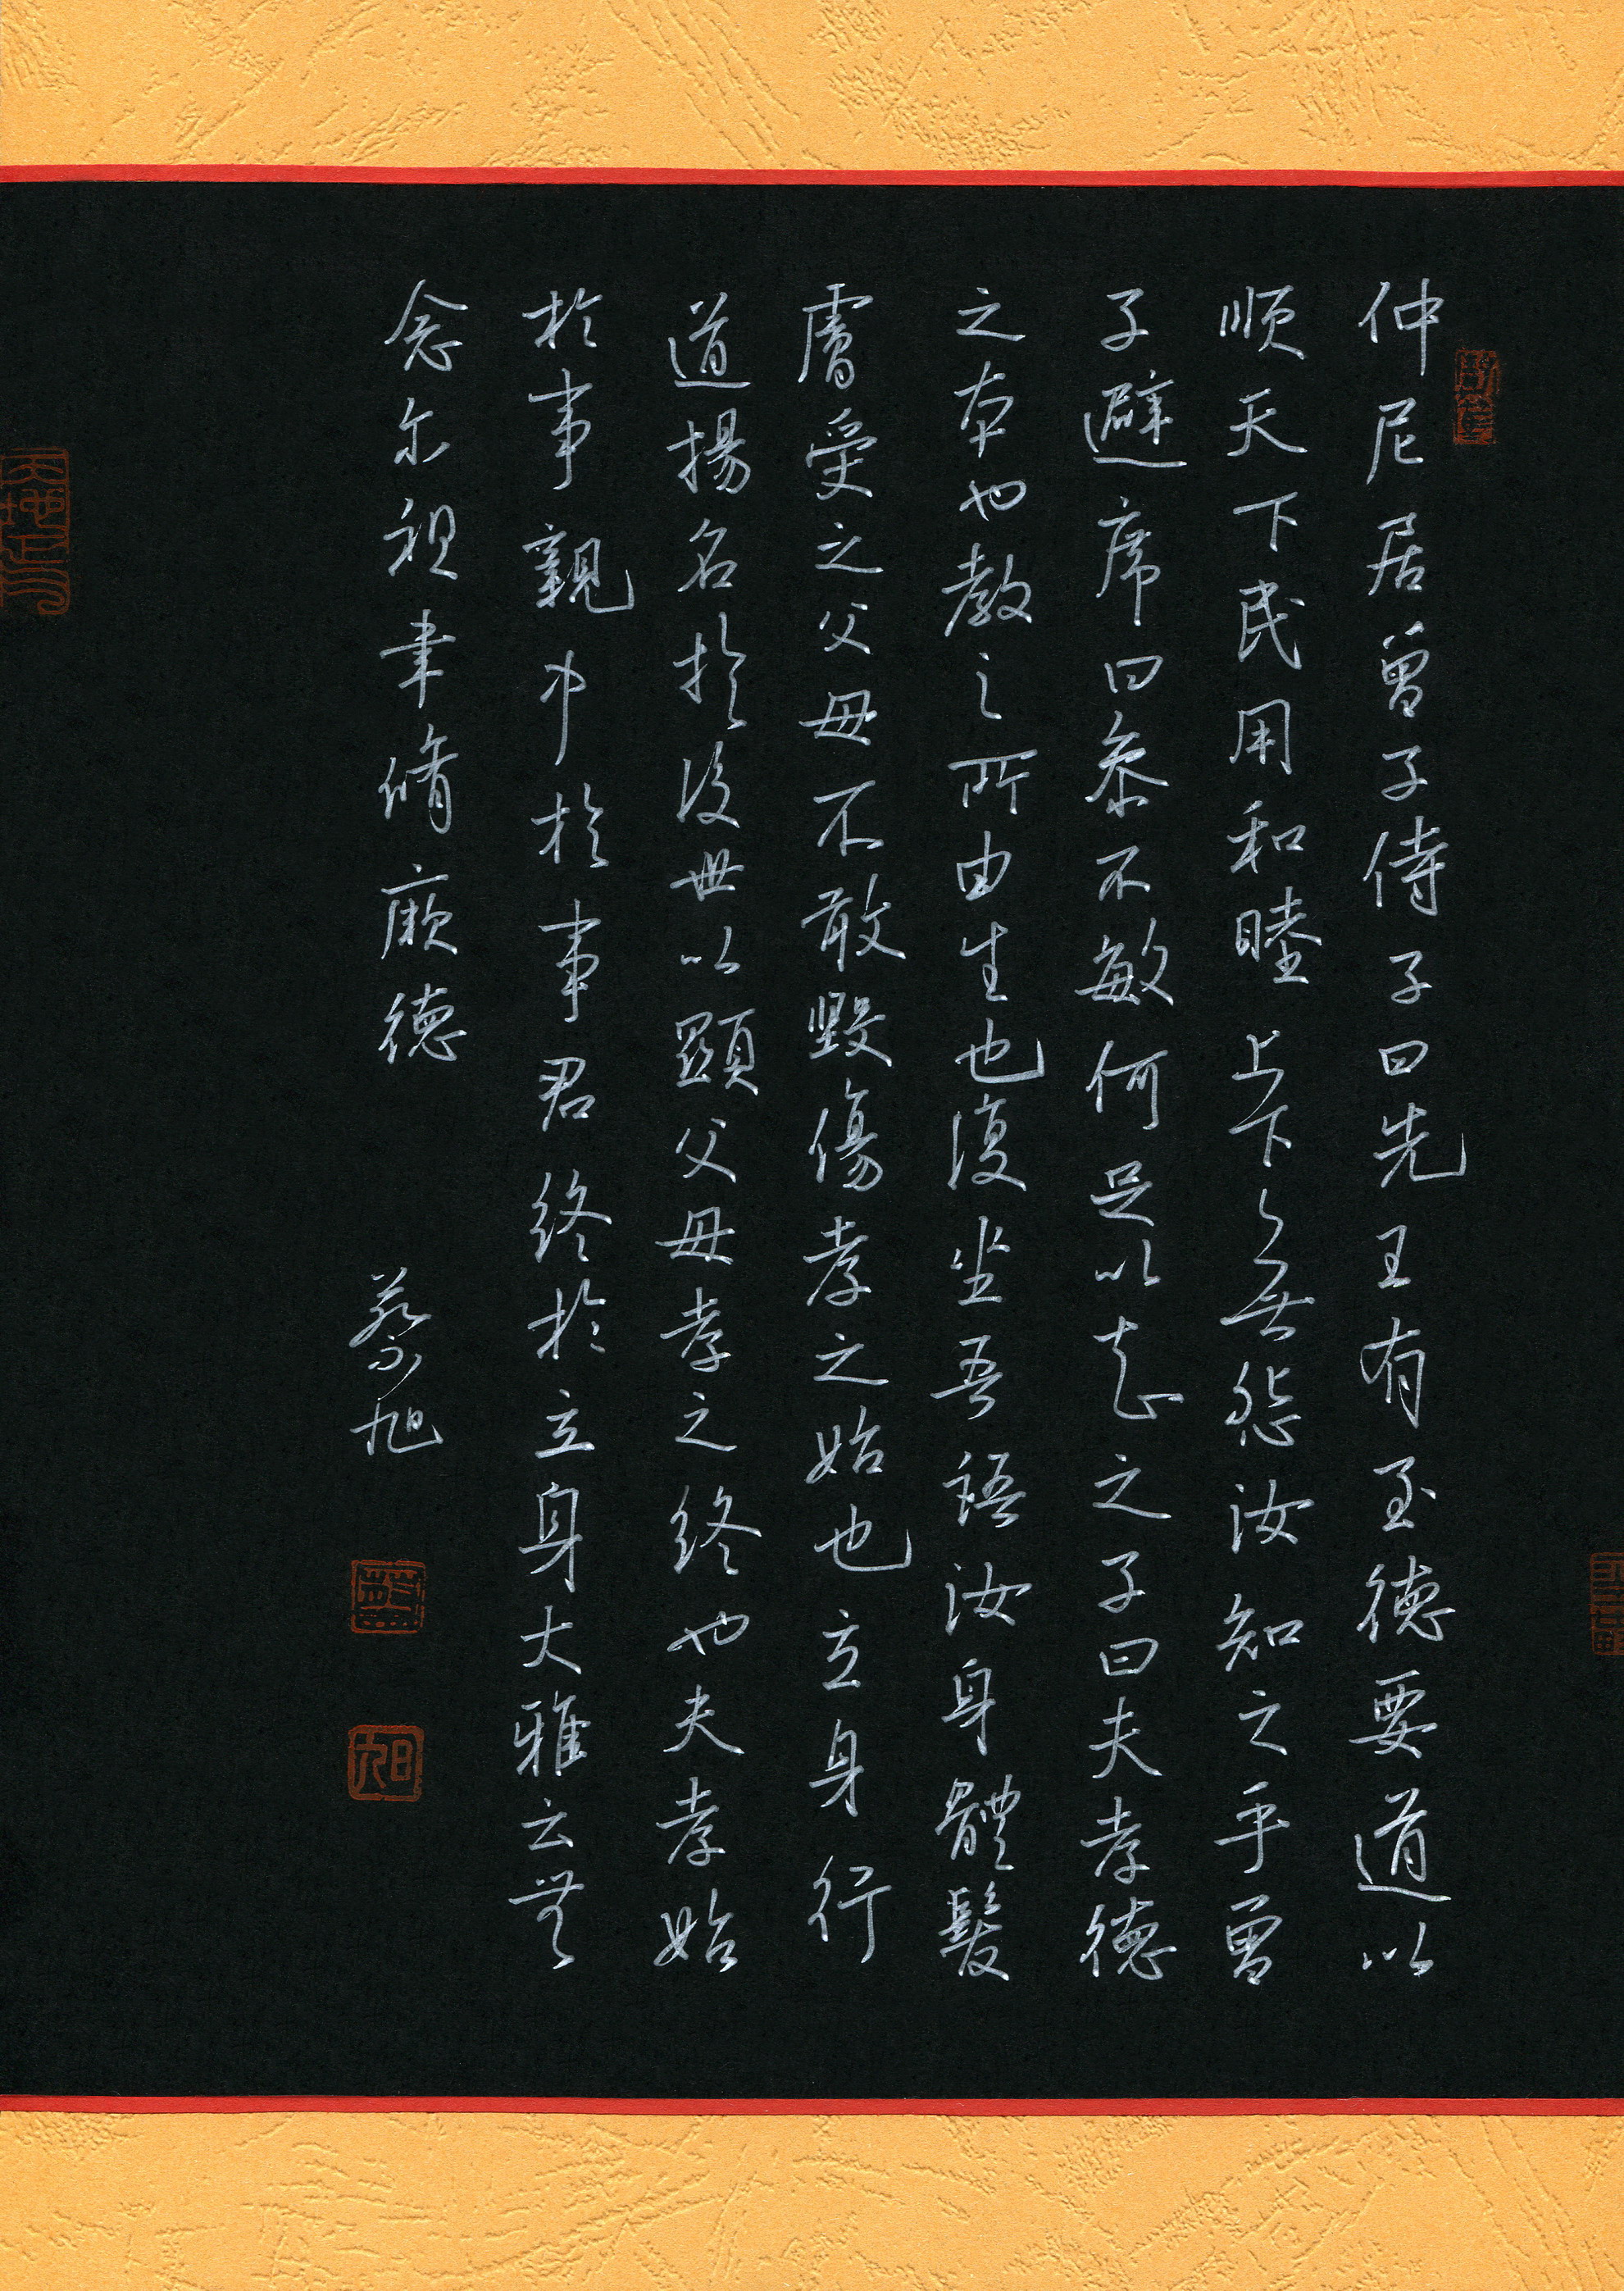 仲尼居曾子侍子曰先王有至德要道以
順天下民用和睦上下無怨汝知之乎曾
子避席曰參不敏何足以知之子曰夫孝德
之本也教之所由生也復坐吾語汝身體髮
膚受之父母不敢毀傷孝之始也立身行
道揚名於後世以顯父母孝之終也夫孝始
於事親中於事君終於立身大雅云無
念尔祖聿脩厥德
蔡旭
旭